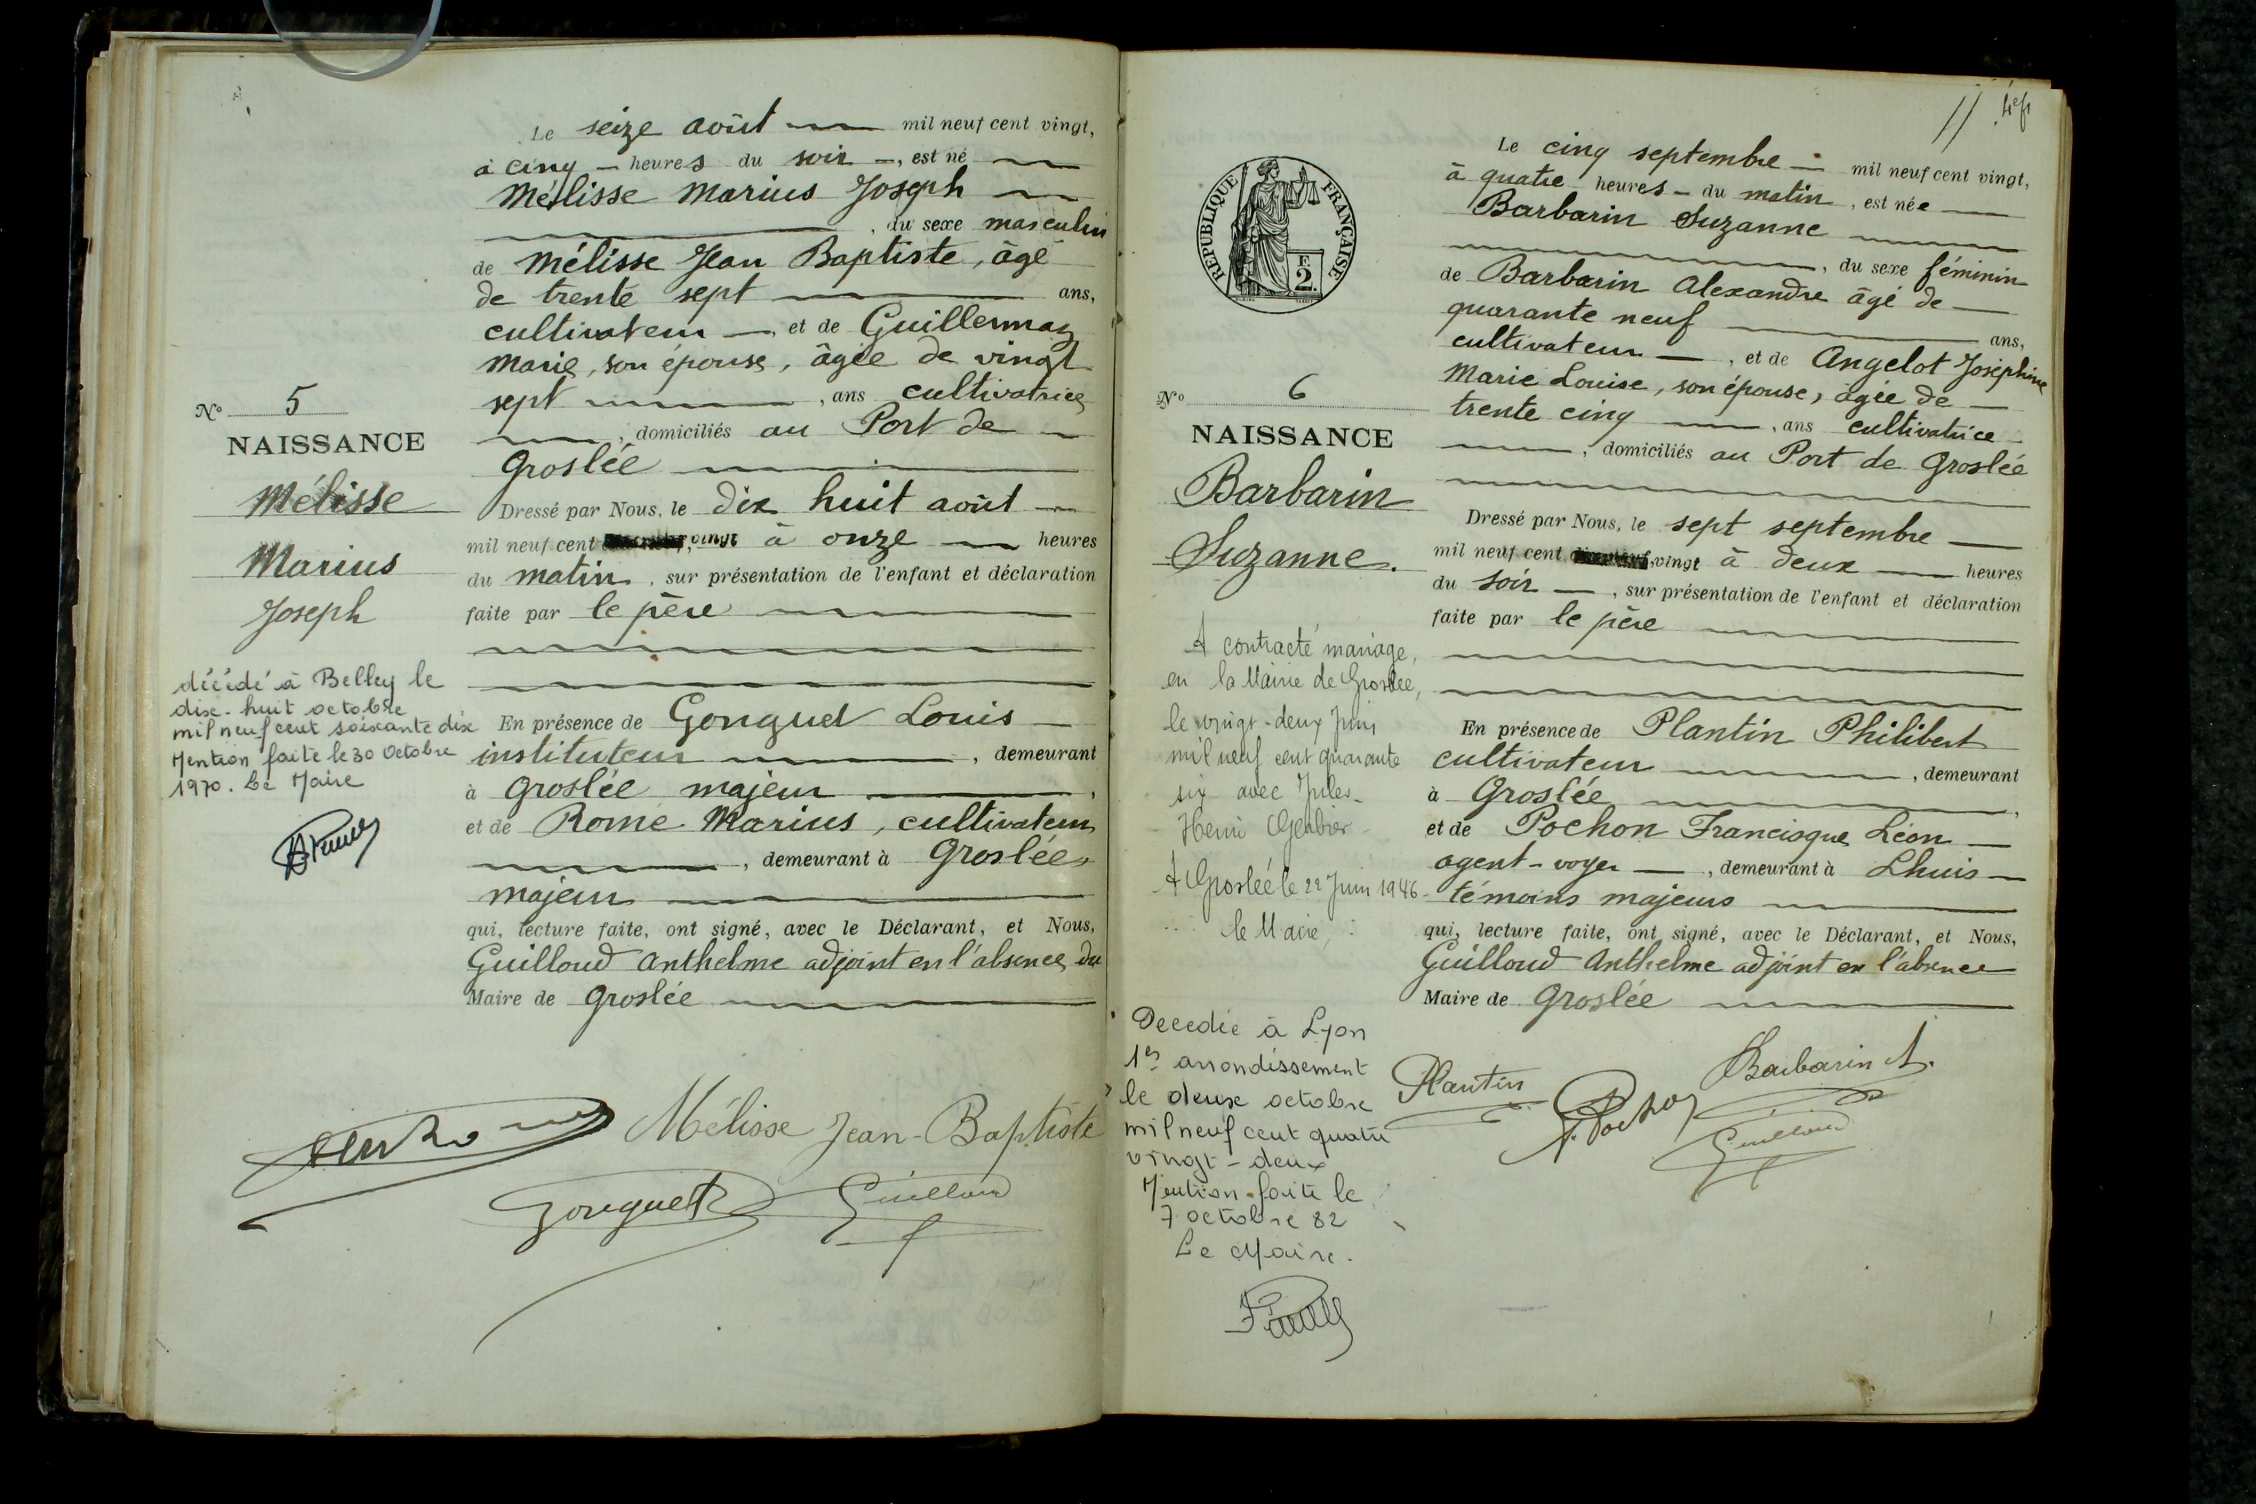 Le seize août mil neuf cent vingt,
à cinq heures du soir, est né
Mélisse Marius Joseph
, du sexe masculin
de Mélisse Jean Baptiste, âgé
de trente sept ans,
cultivateur et de Guillermaz
Marie, son épouse, âgée de vingt
sept, ans cultivatrice
, domiciliés au Port de
Groslée
Dressé par Nous, le dix huit août
mil neuf cent vingt à onze heures
du matin, sur présentation de l'enfant et déclaration
faite par le père
En présence de Gonguet Louis
instituteur, demeurant
à Groslée majeur,
et de Rome Marius, cultivateur
, demeurant à Groslée,
majeur
qui, lecture faite, ont signé, avec le Déclarant, et Nous,
Guilloud Anthelme adjoint en l'absence du
Maire de Groslée
N° 5
NAISSANCE
Mélisse
Marius
Joseph
décédé à Belley le
dix-huit octobre
mil neuf cent soixante dix
Mention faite le 30 Octobre
1970. Le Maire
Mélisse Jean-Baptiste
Gonguet
Guilloud
11
RÉPUBLIQUE FRANÇAISE
F.
2.
Le cinq septembre mil neuf cent vingt,
à quatre heures du matin, est née
Barbarin Suzanne
, du sexe féminin
de Barbarin Alexandre âgé de
quarante neuf ans,
cultivateur, et de Angelot Joséphine
Marie Louise, son épouse, âgée de
trente cinq, ans cultivatrice
, domiciliés au Port de Groslée
Dressé par Nous, le sept septembre
mil neuf cent vingt à deux heures
du soir, sur présentation de l'enfant et déclaration
faite par le père
En présence de Plantin Philibert
cultivateur, demeurant
à Groslée,
et de Pochon Francisque Léon
agent-voyer, demeurant à Lhuis
témoins majeurs
qui, lecture faite, ont signé, avec le Déclarant, et Nous,
Guilloud Anthelme adjoint en l'absence
Maire de Groslée
N° 6
NAISSANCE
Barbarin
Suzanne.
A contracté mariage,
en la Mairie de Groslée,
le vingt-deux Juin
mil neuf cent quarante
six avec Jules
Henri Gerbier
A Groslée le 22 Juin 1946
le Maire,
Decedée à Lyon
1er arrondissement
le deux octobre
mil neuf cent quatre
vingt-deux
Mention faite le
7 octobre 82
Le Maire.
Plantin
Barbarin A.
Pochon
Guilloud